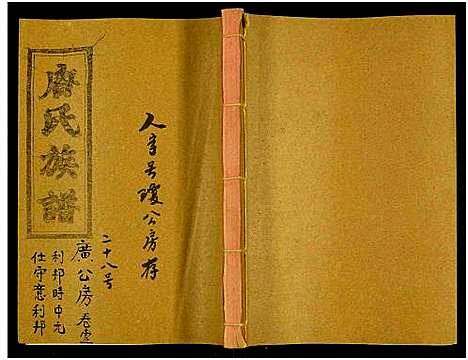 唐氏族譜
人字号瓊公房存
二十八号
廣公房卷壹
利邦時中元
仕守意利邦